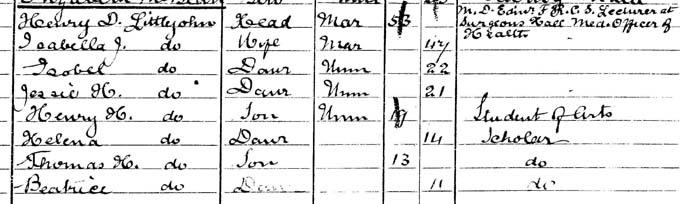 Henry D. Littlejohn Head Mar 53 M.D. Edinr F.R.C.S. Lecturer at
Isabella J. do Wife Mar 47 Surgeons Hall Med. Officer of
Health
Isobel do Daur Unm 22
Jessie H. do Daur Unm 21
Henry H. do Son Unm 19 Student of Arts
Helena do Daur 14 Scholar
Thomas H. do Son 13 do
Beatrice do Daur 11 do